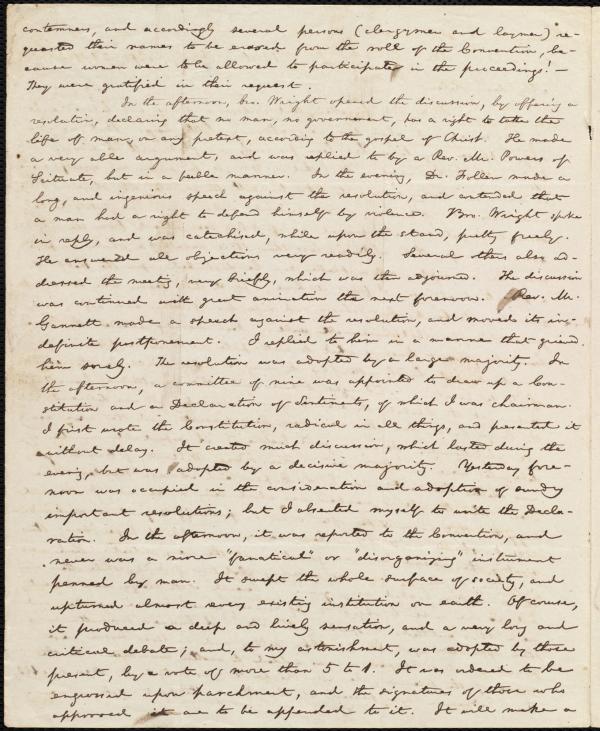 contemners, and accordingly several persons (clergymen and laymen) re-
quested their names to be erased from the roll of the Convention, be-
cause women were to be allowed to participate in the proceedings! —
They were gratified in their request.
In the afternoon, bro. Wright opened the discussion, by offering a
resolution, declaring that no man, no government, has a right to take the
life of man, on any pretext, according to the gospel of Christ. He made
a very able argument, and was replied to by a Rev. Mr. Powers of
Scituate, but in a feeble manner. In the evening, Dr. Follen made a
long, and ingenious speech against the resolution, and contended that
a man had a right to defend himself by violence. Bro. Wright spoke
in reply, and was catechised, while upon the stand, pretty freely.
He answered all objections very readily. Several others also ad-
dressed the meeting, very briefly, which was then adjourned. The discussion
was continued with great animation the next forenoon. Rev. Mr.
Gannett made a speech against the resolution, and moved its in-
definite postponement. I replied to him in a manner that grieved
him sorely. The resolution was adopted by a large majority. In
the afternoon, a committee of nine was appointed to draw up a Con-
stitution and a Declaration of Sentiments, of which I was chairman.
I first wrote the Constitution, radical in all things, and presented it
without delay. It created much discussion, which lasted during the
evening, but was adopted by a decisive majority. Yesterday fore-
noon was occupied in the consideration and adoption of sundry
important resolutions; but I absented myself to write the Decla-
ration. In the afternoon, it was reported to the Convention, and
never was a more "fanatical" or "disorganizing" instrument
penned by man. It swept the whole surface of society, and
upturned almost every existing institution on earth. Of course,
it produced a deep and lively sensation, and a very long and
critical debate; and, to my astonishment, was adopted by those
present, by a vote of more than 5 to 1. It was ordered to be
engrossed upon parchment, and the signatures of those who
approved it are to be appended to it. It will make a